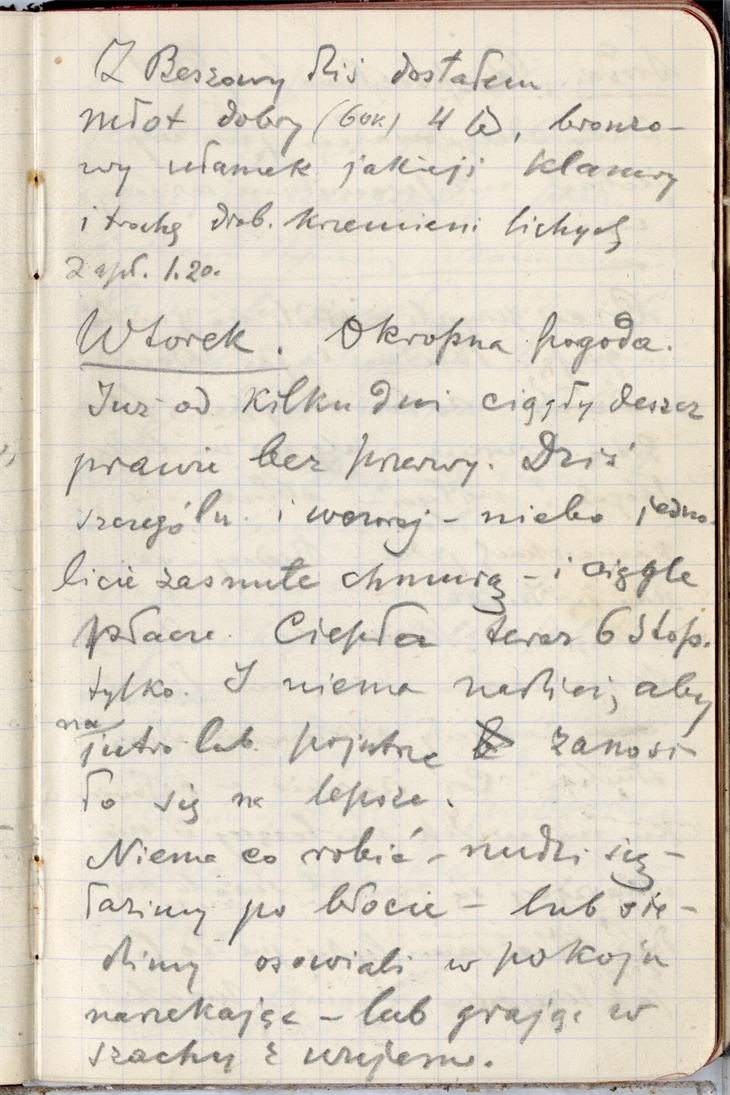 Z Beszowy dziś dostałem
młot dobry (60k) 4 , bronzo-
wy ułamek jakiejś klamry
i trochę drob. krzemieni lichych
zapł. 1.20.
Wtorek. Okropna pogoda.
Już od kilku dni ciągły deszcz
prawie bez przerwy. Dziś
szczególn. i wczoraj – niebo jedno-
licie zasnute chmurą – i ciągle
płacze. Ciepła teraz 6 stop.
tylko. I niema nadziei, aby
na
jutro lub pojutrze zanosi-
ło się na lepsze.
Niema co robić – nudzi się –
łazimy po błocie – lub sie-
dzimy osowiali w pokoju
narzekając – lub grając w
szachy z wujem.